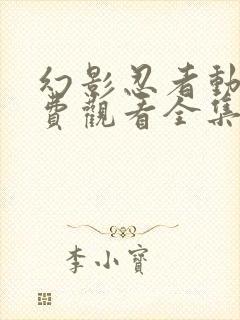 幻影忍者動
費觀看全集
李小寶